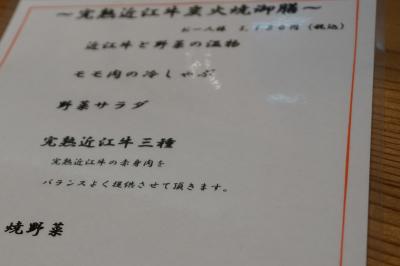 ～完熟近江牛炭火焼御膳～
お一人様 (税込)
近江牛と野菜の温物
モモ肉の冷しゃぶ
野菜サラダ
完熟近江牛三種
完熟近江牛の赤身肉を
バランスよく提供させて頂きます。
焼野菜